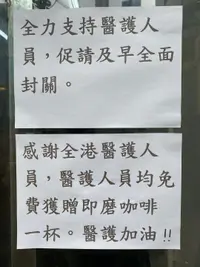 全力支持醫護人
員，促請及早全面
封關。
感謝全港醫護人
員，醫護人員均免
費獲贈即磨咖啡
一杯。醫護加油!!